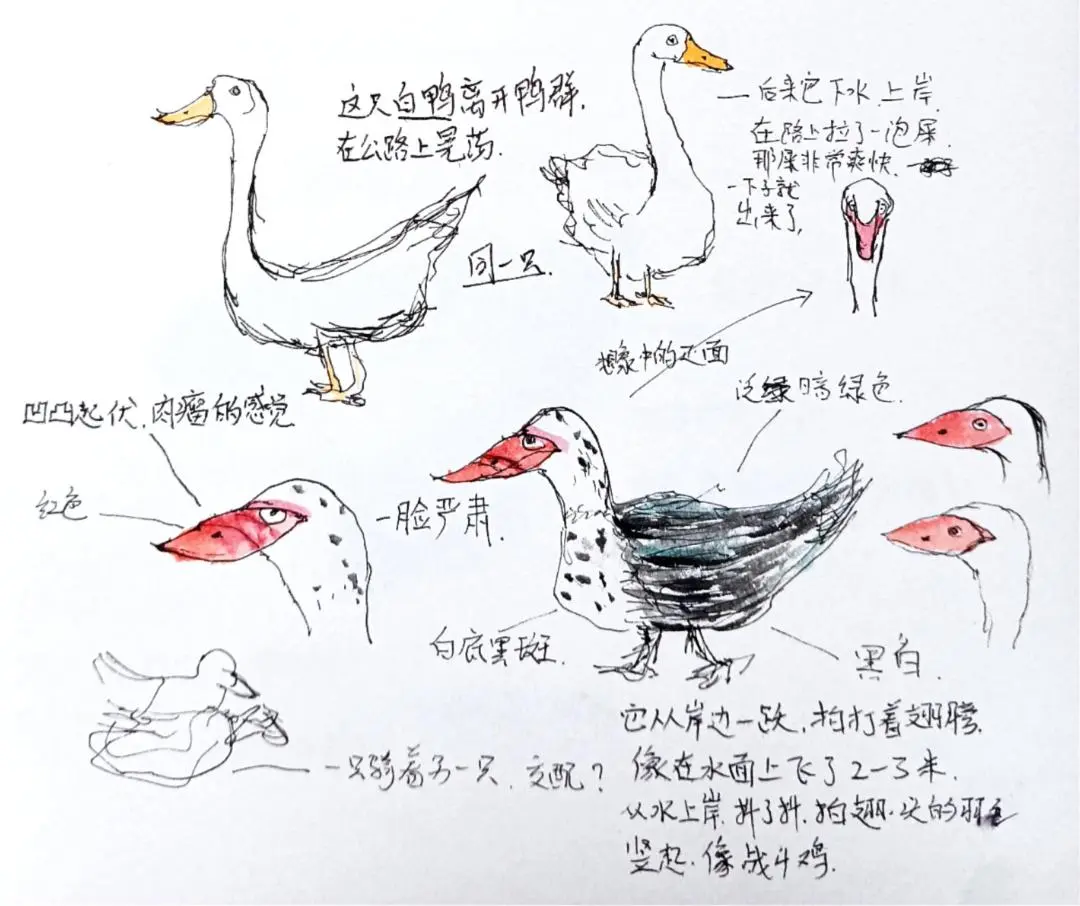 这只白鸭离开鸭群.
在公路上晃荡.
同一只.
后来它下水.上岸.
在路上拉了一泡屎.
那屎非常爽快.
一下子就
出来了,
想象中的正面
凹凸起伏.肉瘤的感觉
红色
一脸严肃.
泛绿暗绿色.
白底黑斑.
黑白.
一只骑着另一只.交配?
它从岸边一跃.拍打着翅膀.
像在水面上飞了2-3米.
从水上岸.抖了抖.拍翅.头的羽毛
竖起.像战斗鸡.